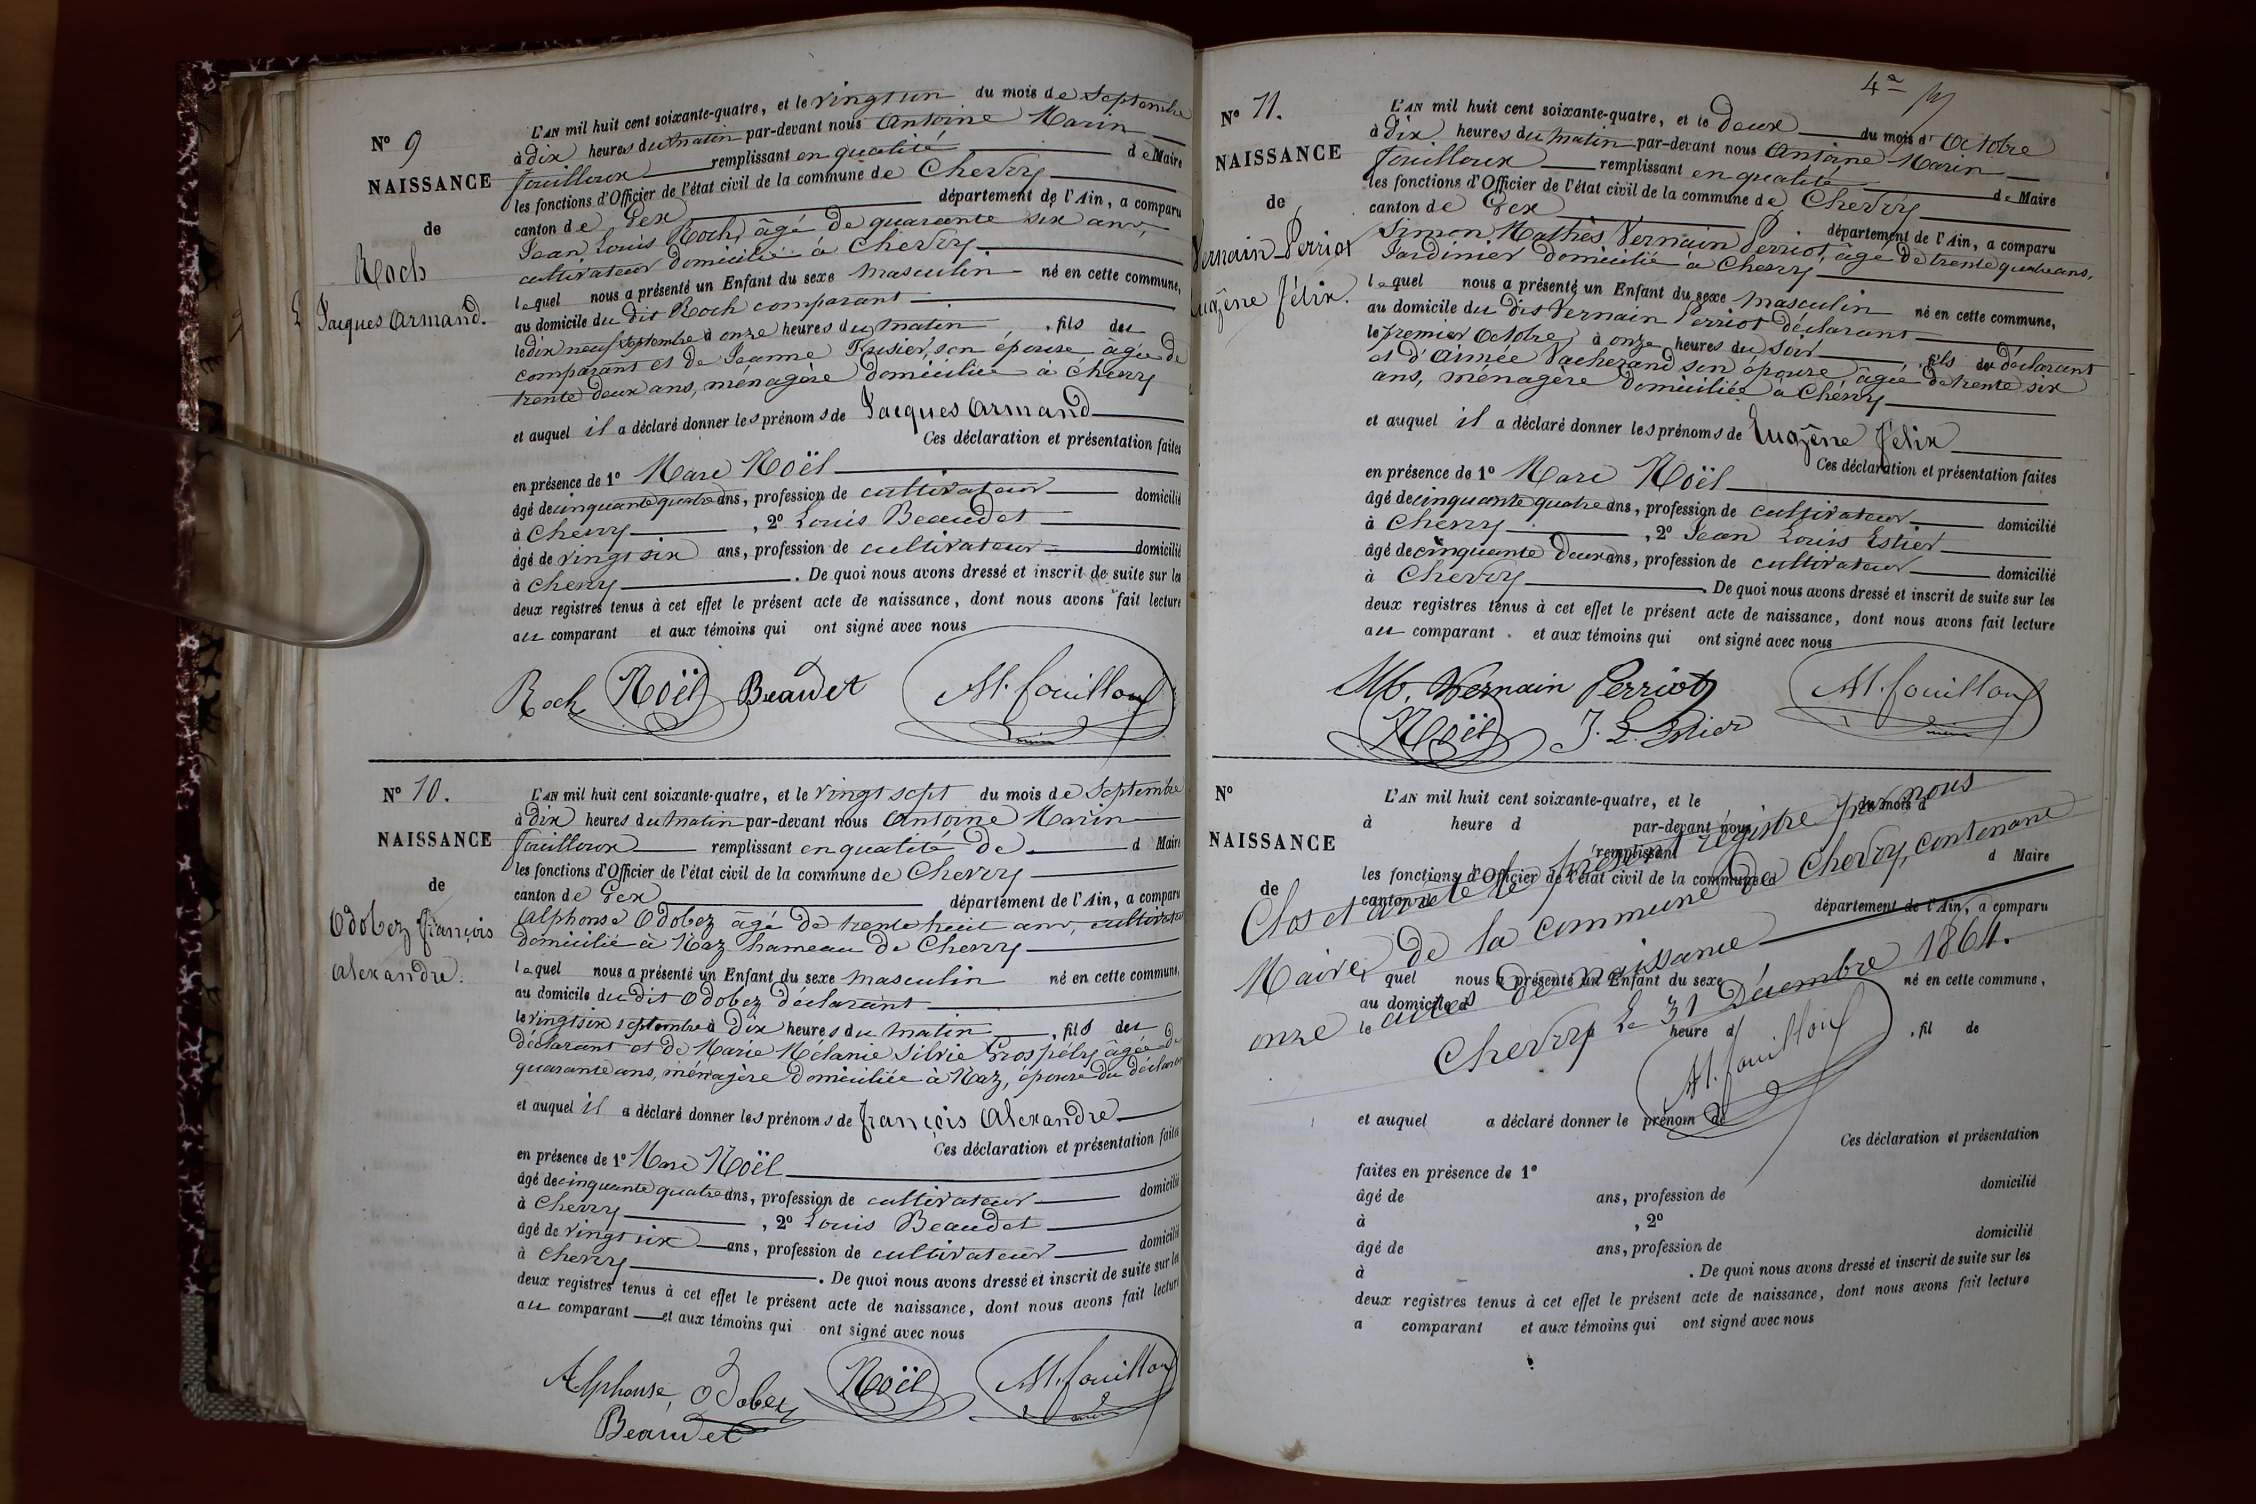 N° 9
NAISSANCE
de
Roch
Jacques Armand.
L'AN mil huit cent soixante-quatre, et le vingt un du mois de Septembre
à dix heures du matin par-devant nous Antoine Marin
fouilloux remplissant en qualité de Maire
les fonctions d'Officier de l'état civil de la commune de Chevry
canton de Gex département de l'Ain, a comparu
Jean Louis Roch, âgé de quarante six ans,
cultivateur domicilié à Chevry
lequel nous a présenté un Enfant du sexe masculin né en cette commune,
au domicile du dit Roch comparant
le dix neuf septembre à onze heures du matin, fils du
comparant et de Jeanne son épouse âgée de
trente deux ans, ménagère domiciliée à Chevry
et auquel il a déclaré donner les prénoms de Jacques Armand
Ces déclaration et présentation faites
en présence de 1° Marc Noël
âgé de cinquante quatre ans, profession de cultivateur domicilié
à Chevry, 2° Louis Beaudet
âgé de vingt six ans, profession de cultivateur domicilié
à Chevry. De quoi nous avons dressé et inscrit de suite sur les
deux registres tenus à cet effet le présent acte de naissance, dont nous avons fait lecture
au comparant et aux témoins qui ont signé avec nous
Roch Noël Beaudet M. fouilloux
N° 10.
NAISSANCE
de
Odobez françois
Alexandre.
L'AN mil huit cent soixante-quatre, et le vingt sept du mois de Septembre
à dix heures du matin par-devant nous Antoine Marin
fouilloux remplissant en qualité de d Maire
les fonctions d'Officier de l'état civil de la commune de Chevry
canton de Gex département de l'Ain, a comparu
Alphonse Odobez âgé de trente huit ans, cultivateur
domicilié à Naz hameau de Chevry
lequel nous a présenté un Enfant du sexe masculin né en cette commune,
au domicile du dit Odobez déclarant
le vingt six septembre à dix heures du matin, fils du
déclarant et de Marie Mélanie Silvie Grospély âgée de
quarante ans, ménagère domiciliée à Naz, épouse du déclarant
et auquel il a déclaré donner les prénoms de françois Alexandre
Ces déclaration et présentation faites
en présence de 1° Marc Noël
âgé de cinquante quatre ans, profession de cultivateur domicilié
à Chevry, 2° Louis Beaudet
âgé de vingt six ans, profession de cultivateur domicilié
à Chevry. De quoi nous avons dressé et inscrit de suite sur les
deux registres tenus à cet effet le présent acte de naissance, dont nous avons fait lecture
au comparant et aux témoins qui ont signé avec nous
Alphonse, Odobez Noël M. fouilloux
Beaudet
4e
N° 11.
NAISSANCE
de
Vernain Perriot
Eugène félix.
L'AN mil huit cent soixante-quatre, et le deux du mois d'Octobre
à dix heures du matin par-devant nous Antoine Marin
fouilloux remplissant en qualité de Maire
les fonctions d'Officier de l'état civil de la commune de Chevry
canton de Gex département de l'Ain, a comparu
Simon Mathès Vernain Perriot, âgé de trente quatre ans,
Jardinier domicilié à Chevry
lequel nous a présenté un Enfant du sexe masculin né en cette commune,
au domicile du dit Vernain Perriot déclarant
le premier Octobre, à onze heures du soir, fils du déclarant
et d'Aimée Vacherand son épouse âgée de trente six
ans, ménagère domiciliée à Chevry
et auquel il a déclaré donner les prénoms de Eugène félix
Ces déclaration et présentation faites
en présence de 1° Marc Noël
âgé de cinquante quatre ans, profession de cultivateur domicilié
à Chevry, 2° Jean Louis Estier
âgé de cinquante deux ans, profession de cultivateur domicilié
à Chevry. De quoi nous avons dressé et inscrit de suite sur les
deux registres tenus à cet effet le présent acte de naissance, dont nous avons fait lecture
au comparant et aux témoins qui ont signé avec nous
Vernain Perriot M. fouilloux
Noël J. L. Estier
N°
NAISSANCE
de
L'AN mil huit cent soixante-quatre, et le du mois d
à heure d par-devant nous
remplissant d Maire
les fonctions d'Officier de l'état civil de la commune d
canton d département de l'Ain, a comparu
l quel nous a présenté un Enfant du sexe né en cette commune,
au domicile d
le heure d , fil de
Clos et arrêté le présent registre par nous
Maire, de la commune de Chevry, contenant
onze actes de naissance
Chevry le 31 Décembre 1864.
M. fouilloux
et auquel a déclaré donner le prénom de
Ces déclaration et présentation
faites en présence de 1°
âgé de ans, profession de domicilié
à , 2°
âgé de ans, profession de domicilié
à . De quoi nous avons dressé et inscrit de suite sur les
deux registres tenus à cet effet le présent acte de naissance, dont nous avons fait lecture
a comparant et aux témoins qui ont signé avec nous